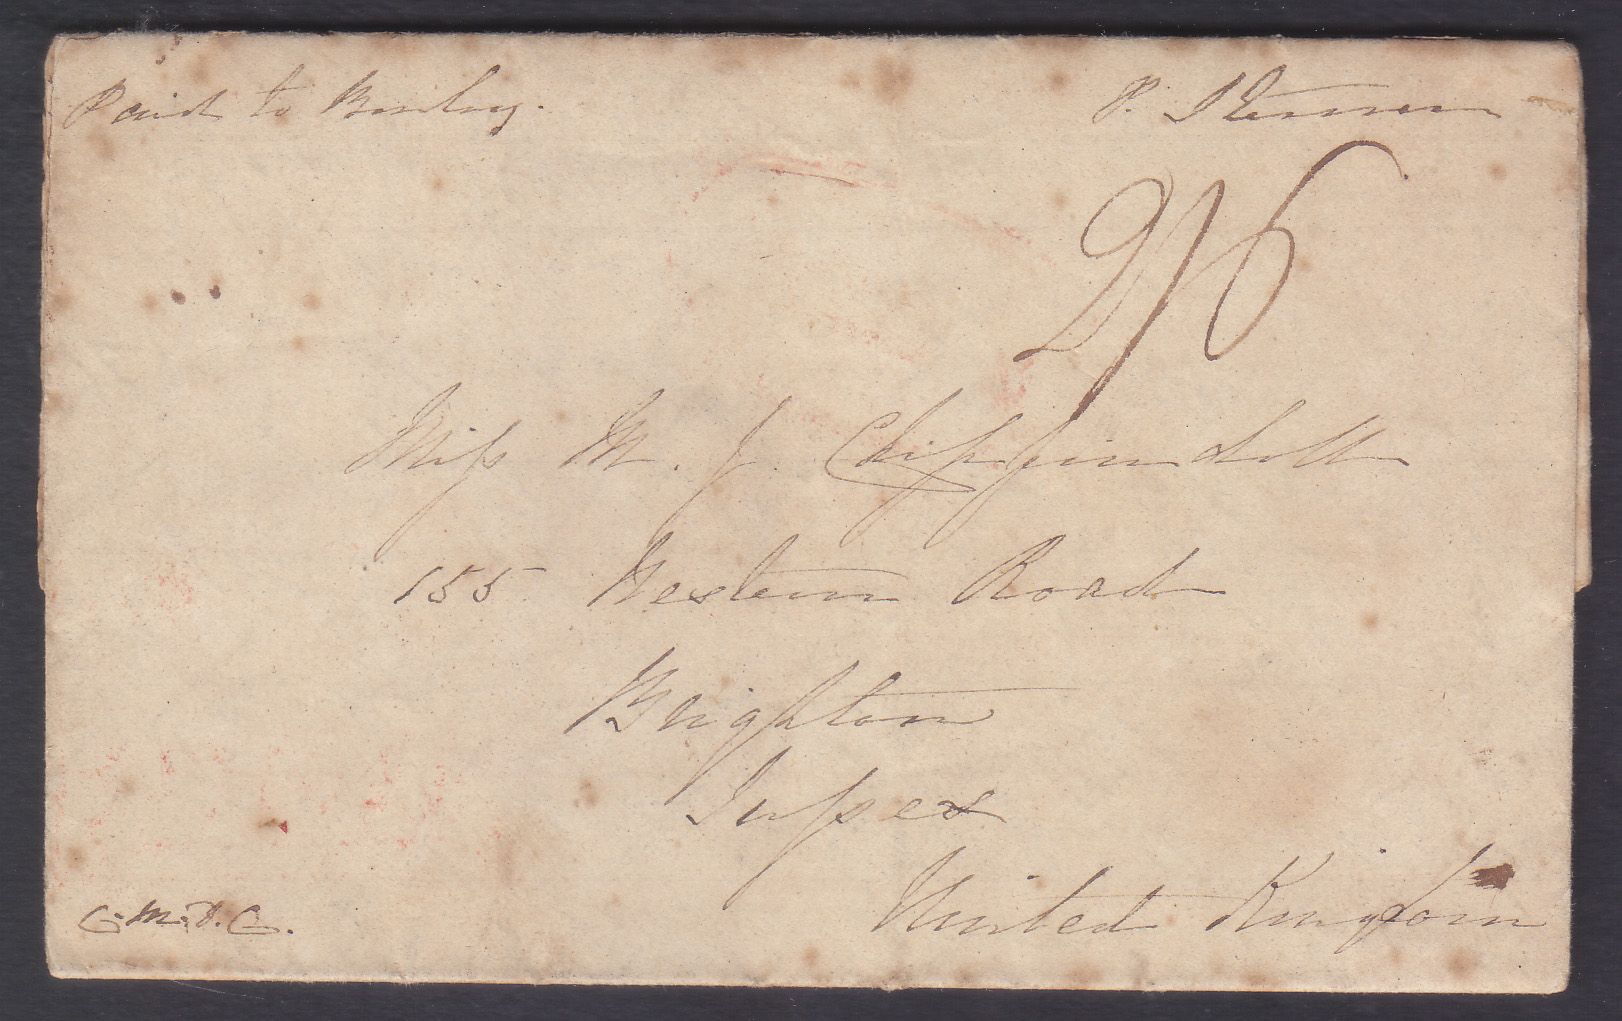 Paid to Bombay.
P. Steamer
2/6
Miss M. J. Chippindall
155 Western Road
Brighton
Sussex
United Kingdom
G. M. D. C.